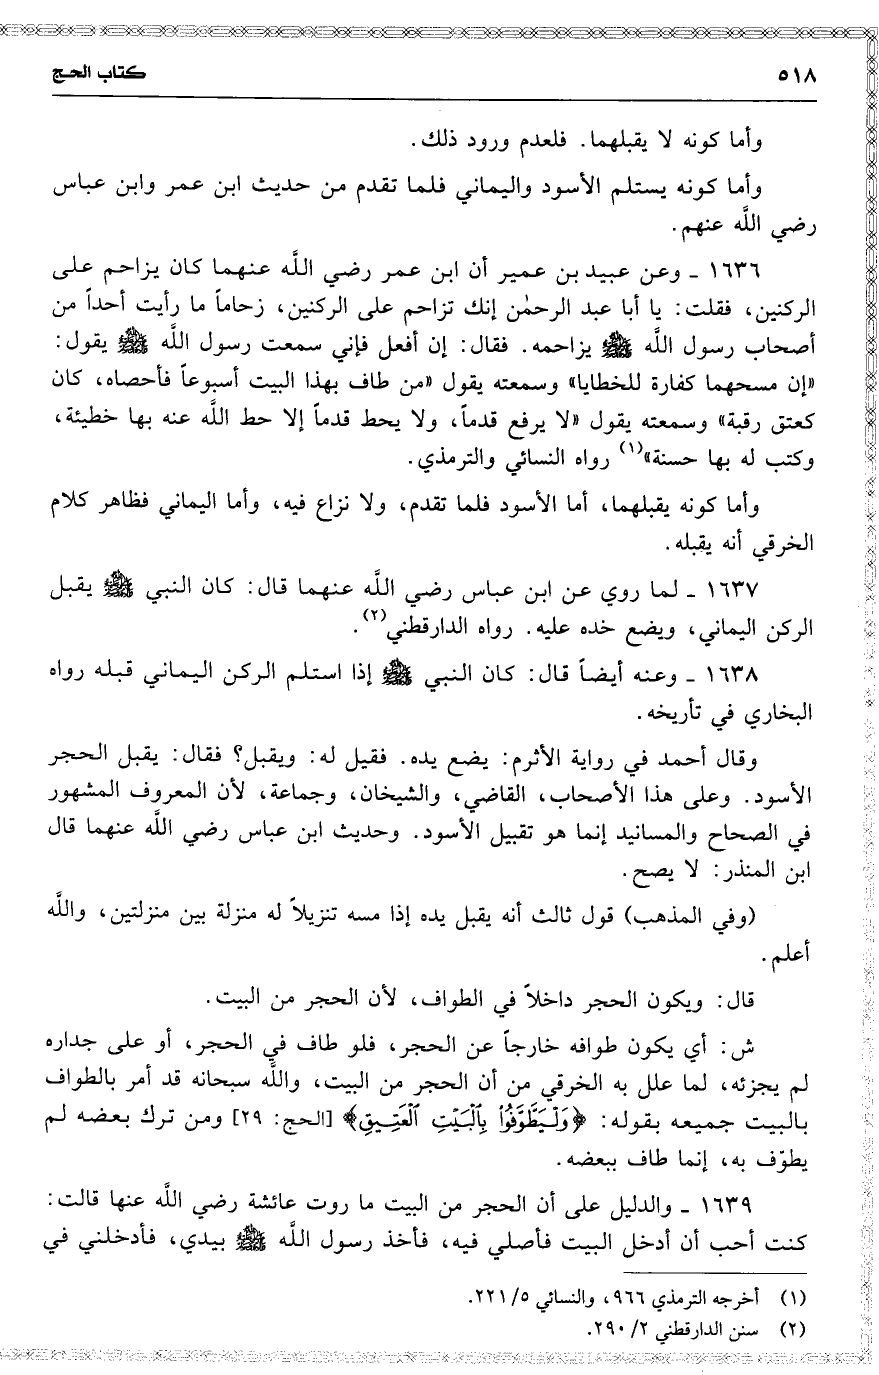 ٥١٨ كتاب الحج
وأما كونه لا يقبلهما. فلعدم ورود ذلك.
وأما كونه يستلم الأسود واليماني فلما تقدم من حديث ابن عمر وابن عباس
رضي اللَّه عنهم.
١٦٣٦ ـ وعن عبيد بن عمير أن ابن عمر رضي اللَّه عنهما كان يزاحم على
الركنين، فقلت: يا أبا عبد الرحمٰن إنك تزاحم على الركنين، زحاماً ما رأيت أحداً من
أصحاب رسول اللَّه ﷺ يزاحمه. فقال: إن أفعل فإني سمعت رسول اللَّه ﷺ يقول:
«إن مسحهما كفارة للخطايا» وسمعته يقول «من طاف بهذا البيت أسبوعاً فأحصاه، كان
كعتق رقبة» وسمعته يقول «لا يرفع قدماً، ولا يحط قدماً إلا حط اللَّه عنه بها خطيئة،
وكتب له بها حسنة»(١) رواه النسائي والترمذي.
وأما كونه يقبلهما، أما الأسود فلما تقدم، ولا نزاع فيه، وأما اليماني فظاهر كلام
الخرقي أنه يقبله.
١٦٣٧ ـ لما روي عن ابن عباس رضي اللَّه عنهما قال: كان النبي ﷺ يقبل
الركن اليماني، ويضع خده عليه. رواه الدارقطني(٢).
١٦٣٨ ـ وعنه أيضاً قال: كان النبي ﷺ إذا استلم الركن اليماني قبله رواه
البخاري في تأريخه.
وقال أحمد في رواية الأثرم: يضع يده. فقيل له: ويقبل؟ فقال: يقبل الحجر
الأسود. وعلى هذا الأصحاب، القاضي، والشيخان، وجماعة، لأن المعروف المشهور
في الصحاح والمسانيد إنما هو تقبيل الأسود. وحديث ابن عباس رضي اللَّه عنهما قال
ابن المنذر: لا يصح.
(وفي المذهب) قول ثالث أنه يقبل يده إذا مسه تنزيلاً له منزلة بين منزلتين، واللَّه
أعلم.
قال: ويكون الحجر داخلاً في الطواف، لأن الحجر من البيت.
ش: أي يكون طوافه خارجاً عن الحجر، فلو طاف في الحجر، أو على جداره
لم يجزئه، لما علل به الخرقي من أن الحجر من البيت، واللَّه سبحانه قد أمر بالطواف
بالبيت جميعه بقوله: ﴿وَلْيَطَّوَّفُوا۟ بِٱلْبَيْتِ ٱلْعَتِيقِ﴾ [الحج: ٢٩] ومن ترك بعضه لم
يطوّف به، إنما طاف ببعضه.
١٦٣٩ ـ والدليل على أن الحجر من البيت ما روت عائشة رضي اللَّه عنها قالت:
كنت أحب أن أدخل البيت فأصلي فيه، فأخذ رسول اللَّه ﷺ بيدي، فأدخلني في
(١) أخرجه الترمذي ٩٦٦، والنسائي ٥/ ٢٢١.
(٢) سنن الدارقطني ٢/ ٢٩٠.